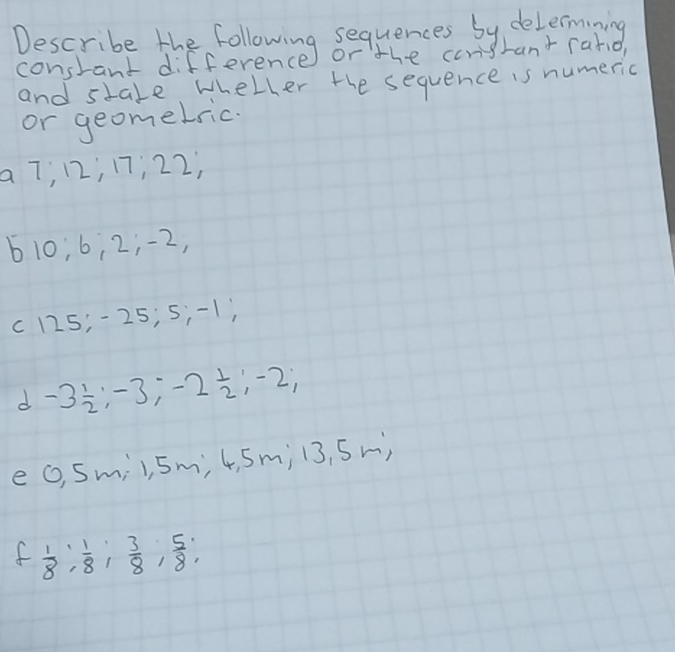 Describe the following sequences by determining
constant difference or the constant ratio,
and state whether the sequence is numeric
or geometric.
a 7; 12; 17; 22;
b 10; 6; 2; -2,
c 125; -25; 5; -1;
d -3 1/2; -3; -2 1/2; -2;
e 0,5m; 1,5m; 4,5m; 13,5m;
f 1/8; 1/8; 3/8; 5/8;